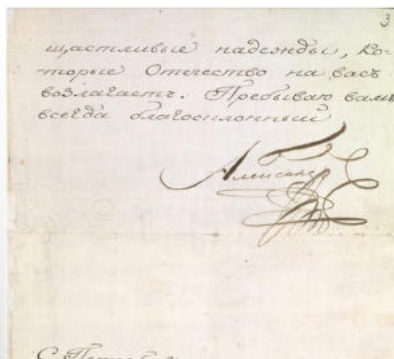 3
щастливые надежды, ко-
торые Отечество на васъ
возлагаетъ. Пребываю вамъ
всегда благосклонный
Александр